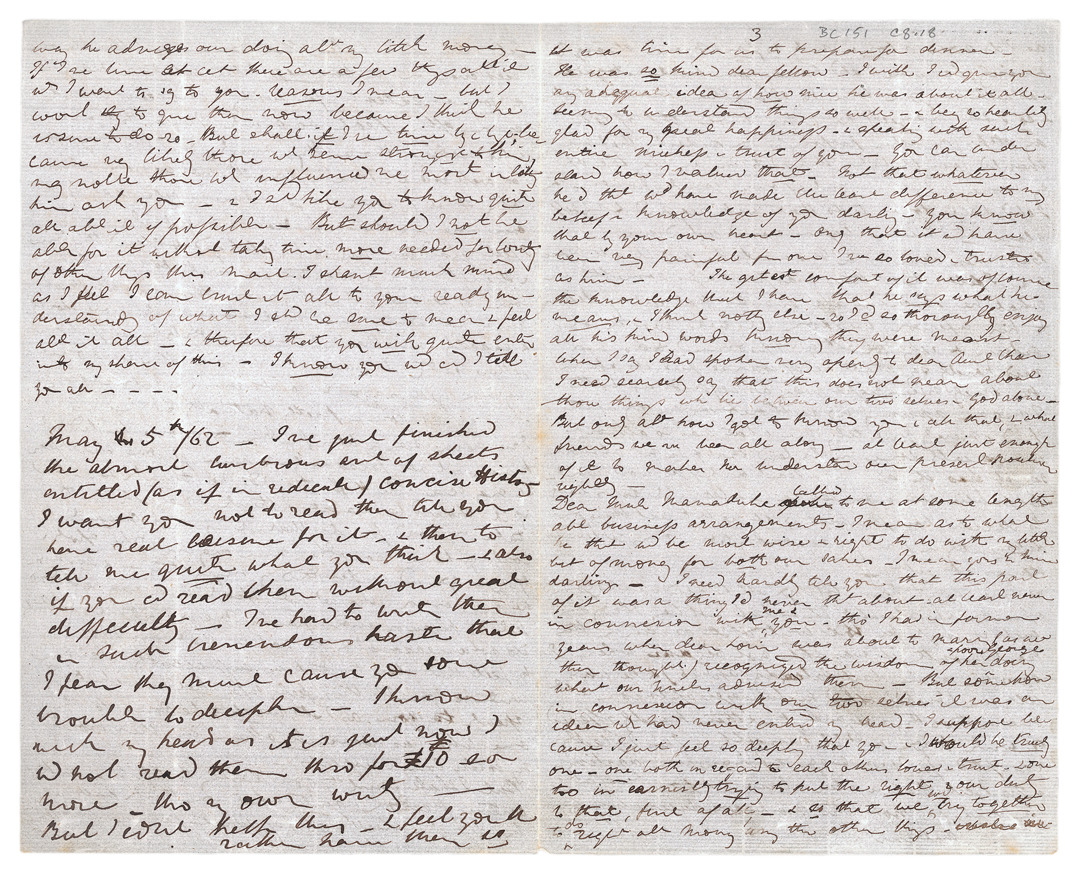 way he advises our doing abt my little money –
if I've time at
wh I want to say to you – reasons I mean – but I
wont to give them now because I think he
is sure to do so – But shall if I've time by & bye be-
cause very likely those wh seem strongest to him,
may not be those wh influence me most in letting
him ask you – & I shd like you to know quite
all abt it if possible – But should I not be
able for it without taking time more needed for writing
of other things this mail. I shant much mind
as I feel I can trust it all to your ready un-
derstanding of what I shd be sure to mean & feel
abt it all – & therefore that you will quite enter
into my share of this – I know you wd if I cd tell
you all – – – –
May 5th/62 – I've just finished
the almost most of sheets
entitled (as if in ridicule) concise History
I want you not to read them till you
have real leisure for it – & then to
tell me quite what you think – & also
if you cd read them without great
difficulty – I've had to write them
in such tremendous haste that
I fear they must cause you some
trouble to decipher – I know
with my head as it is just now I
wd not read them thro for £10 or
more – tho' my own writing –
But I can't help this – & feel you'd
rather have them so
3 BC151 C8.18
it was time for us to prepare for dinner –
He was so kind dear fellow – I wish I cd give you
any adequate idea of how nice he was about it all –
seeming to understand things so well – & being so heartily
glad for my great happiness – & speaking with such
entire & trust of you – You can under
stand how I valued that – Not that whatever
he'd thot wd have made the least difference to my
belief & knowledge of you darling – you know
that by your own heart – only that it wd have
been very painful for one I've so loved & trusted
as him – The greatest comfort of it was of course
the knowledge that I have that he says what he
means, & I think nothing else – so I cd so thoroughly enjoy
all his kind words knowing they were meant –
When I say I had spoken very openly to dear
I need scarcely say that this does not mean about
those things wh lie between our two selves & God alone –
But only abt how I got to know you & all that, & what
friends we've been all along – at least just enough
of it to make him understand our present position
rightly –
Dear Uncle Marmaduke talked to me at some length
abt business arrangements – I mean as to what
he thot wd be most wise & right to do with my little
bit of money for both our sakes – I mean yours & mine
darling – I need hardly tell you that this part
of it was a thing I'd never thot about – at least never
in connexion with me & you – tho' I had in former
years when dear Annie was about to marry (as we
then thought) poor George recognized the wisdom of her doing
what our uncles advised them – But somehow
in connexion with our two selves it was an
idea wh had never entered my head. I suppose be
cause I just feel so deeply that you & I should be truly
one – one both in regard to each others love & trust, & one
too in earnestly trying to put the right, & your duty
to that, first of all – & so that we'll try together
to do right abt money among the other things –